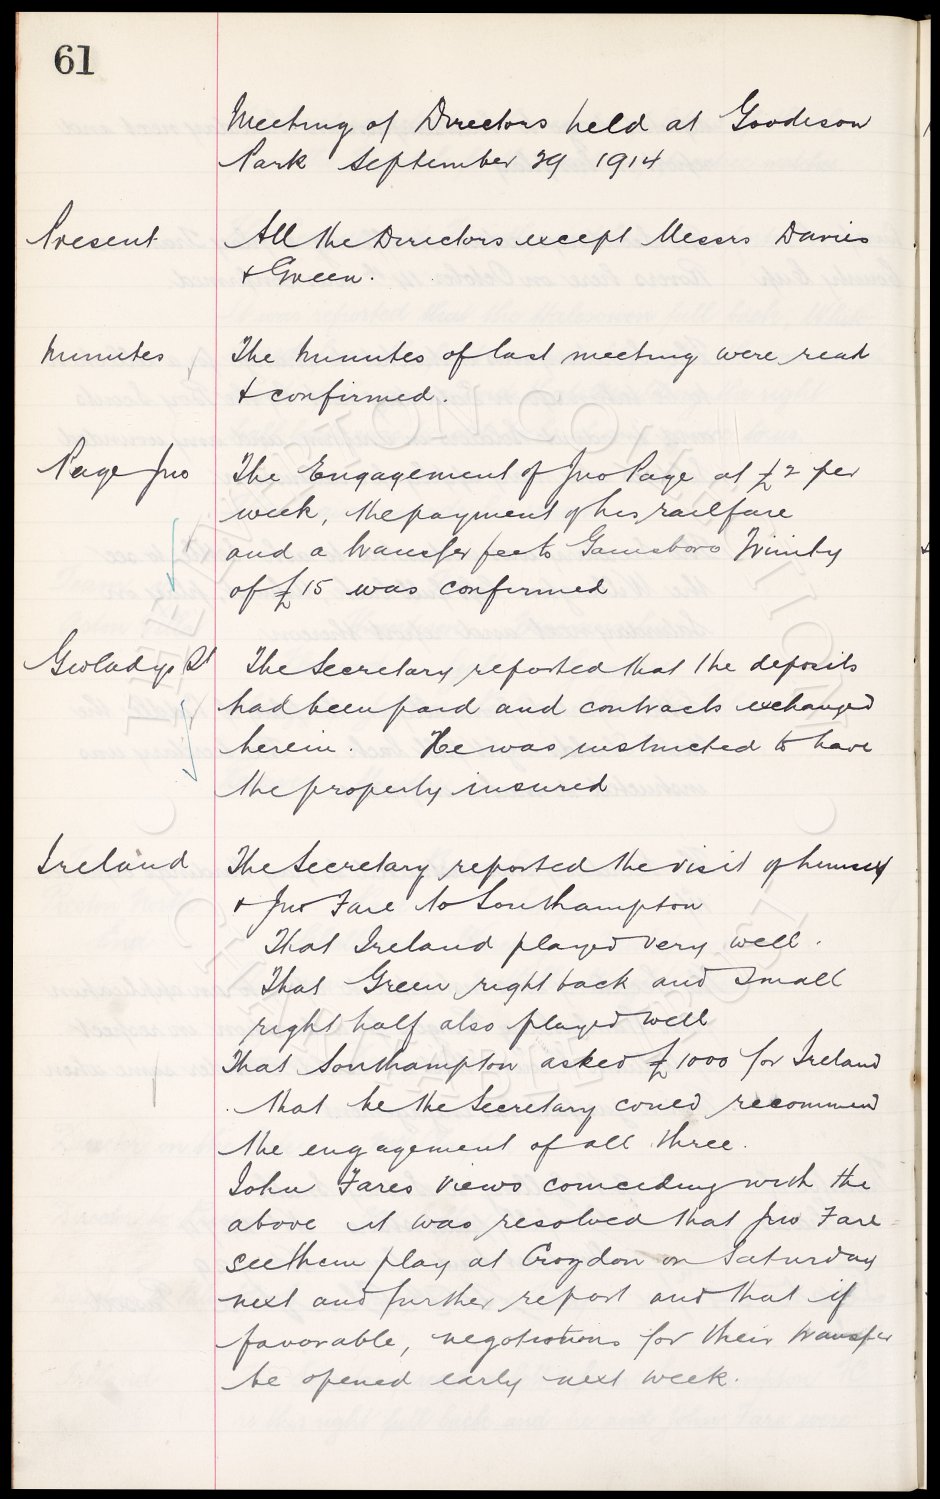 61
Meeting of Directors held at Goodison
Park September 29 1914
Present All the Directors except Messrs Davies
& Green.
Minutes The Minutes of last meeting were read
& confirmed.
Page Jno The Engagement of Jno Page at £2 per
week, the payment of his railfare
and a transfer fee to Gainsboro Trinity
of £15 was confirmed
Gwladys St The Secretary reported that the deposits
had been paid and contracts exchanged
herein. He was instructed to have
the property insured
Ireland The Secretary reported the visit of himself
& Jno Fare to Southampton
That Ireland played very well.
That Green right back and Small
right half also played well
That Southampton asked £1000 for Ireland
that he the Secretary could recommend
the engagement of all three.
John Fares views comceding with the
above it was resolved that Jno Fare
see them play at Croydon on Saturday
next and further report and that if
favorable, negotiations for their transfer
be opened early next week.